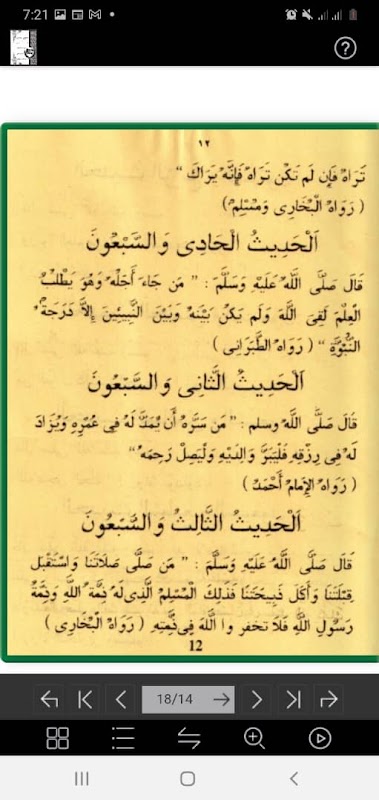 7:21
١٢
تَرَاهُ فَإِن لَم تَكُن تَرَاهُ فَإِنَّهُ يَرَاكَ "
( رَوَاهُ الْبُخَارِى وَمُسْلِمُ)
اَلْحَدِيثُ الْحَادِى وَالسَّبْعُونَ
قَالَ صَلَّى اللَّهُ عَلَيْهِ وَسَلَّمَ : " مَن جَاءَ أَجَلُهُ وَهُوَ يَطْلُبُ
الْعِلْمَ لَقِىَ اللَّهَ وَلَم يَكُنْ بَيْنَهُ وَبَيْنَ النَّبِيِّينَ إِلاَّ دَرَجَةُ
النُّبُوَّةِ " ( رَوَاهُ الطَّبَرَانِى )
اَلْحَدِيثُ الثَّانِى وَالسَّبْعُونَ
قَالَ صَلَّى اللَّهُ وسلم : " مَن سَرَّهُ أَن يُمَدَّ لَهُ فِى عُمْرِهِ وَيُزَادَ
لَهُ فِى رِزْقِهِ فَلْيَبَرَّ وَالدَيْهِ وَلْيَصِلْ رَحِمَهُ "
( رَوَاهُ الإِمَامُ أَحْمَدُ )
اَلْحَدِيثُ الثَّالِثُ وَالسَّبْعُونَ
قَالَ صَلَّى اللَّهُ عَلَيْهِ وَسَلَّمَ : " مَن صَلَّى صَلاَتَنَا وَاسْتَقْبَلَ
قِبْلَتَنَا وَأَكَلَ ذَبِيحَتَنَا فَذَلِكَ الْمُسْلِمُ الَّذِى لَهُ ذِمَّةُ اللَّهِ وَذِمَّةُ
رَسُولِ اللَّهِ فَلاَ تَخفر وا اللَّهَ فِى ذِمَّتِهِ ( رَوَاهُ الْبُخَارِى )
12
18/14